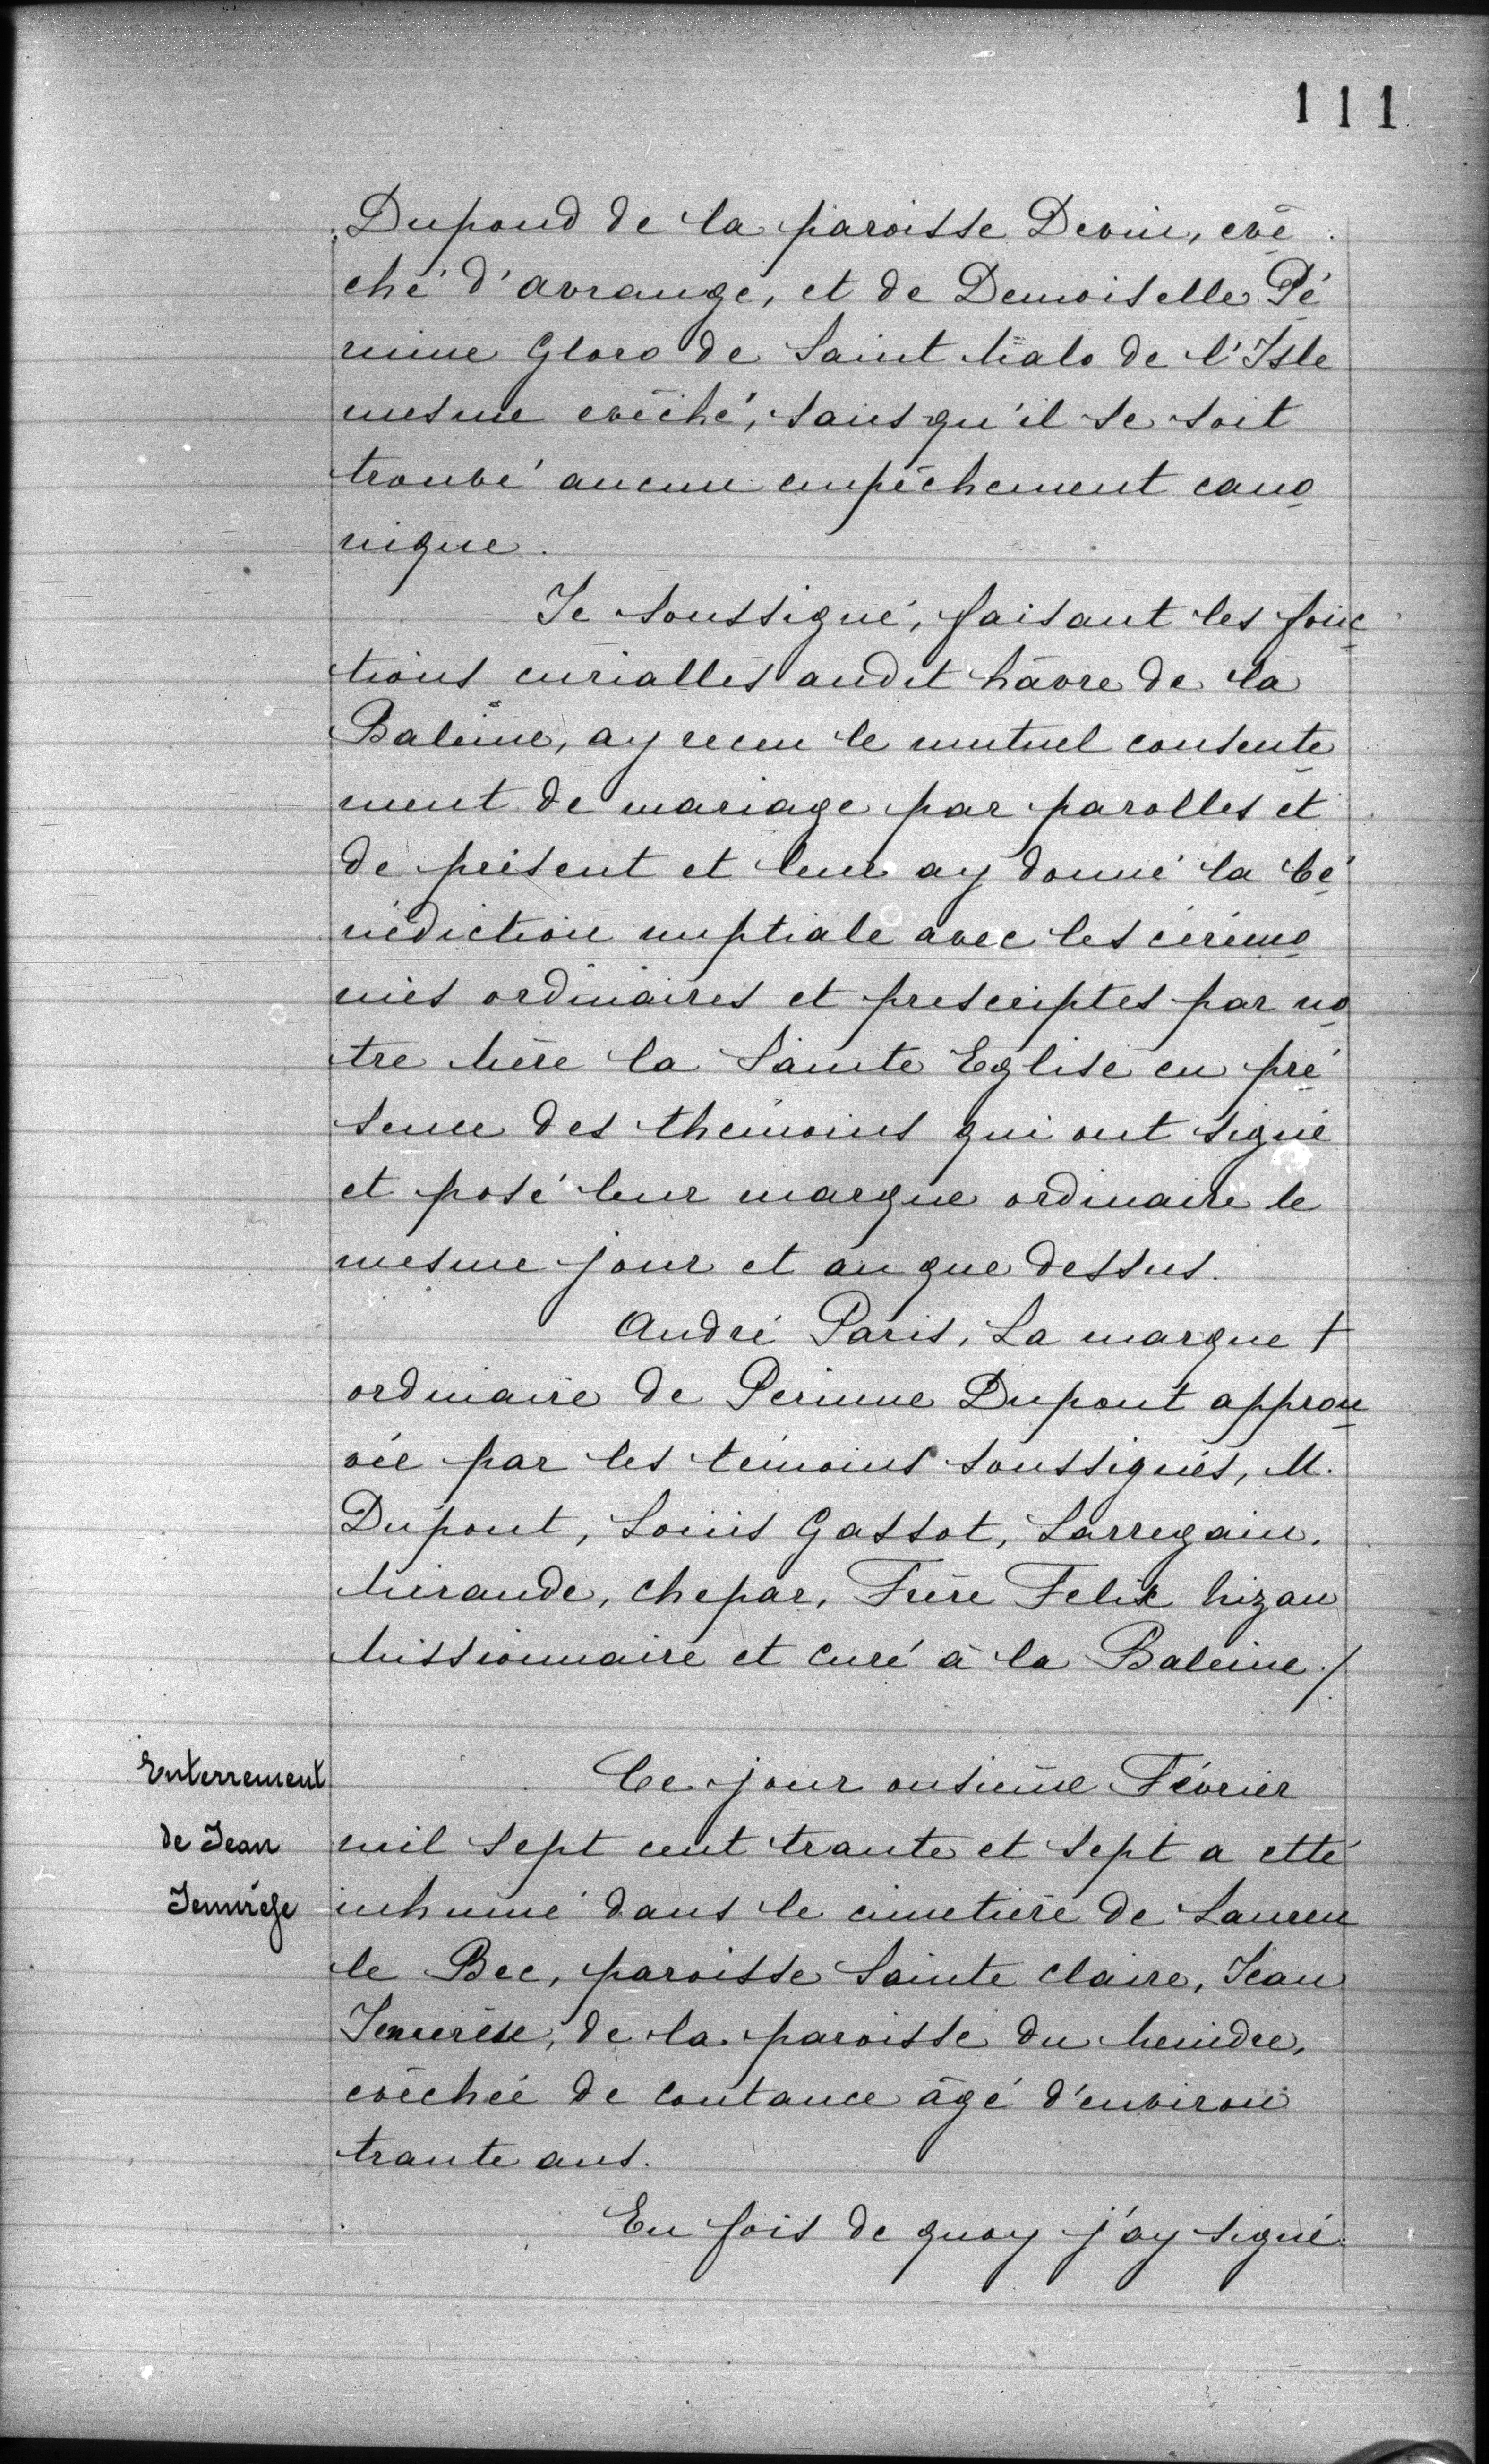 111
Dupond de la paroisse Devin, evê
ché d'avrange, et de Demoiselle Pé
rinne Gloro de Saint Malo de l'Isle
mesme evêché, sans qu'il se soit
trouvé aucun empêchement cano
nique.
Je soussigné, faisant les fonc
tions curialles audit hâvre de la
Baleine, ay receu le mutuel consente
ment de mariage par parolles et
de présent et leur ay donné la bé
nédiction nuptiale avec les cérémo
nies ordinaires et prescriptes par no
tre Mère la Sainte Eglise en pré
sence des thémoins qui ont signé
et posé leur marque ordinaire le
mesme jour et an que dessus.
André Paris, La marque +
ordinaire de Perinne Dupont approu
vée par les témoins soussignés, M.
Dupont, Louis Gassot, Larregain,
Mirande, Chepar, Frère Felix Mizan
Missionnaire et Curé à la Baleine /.
Enterrement
de Jean
Ce jour onsième Février
mil sept cent trante et sept a etté
inhumé dans le cimetière de Lauren
le Bec, paroisse Sainte Claire, Jean
de la paroisse du
evêchée de Coutance âgé d'environ
trante ans.
En fois de quoy j'ay signé